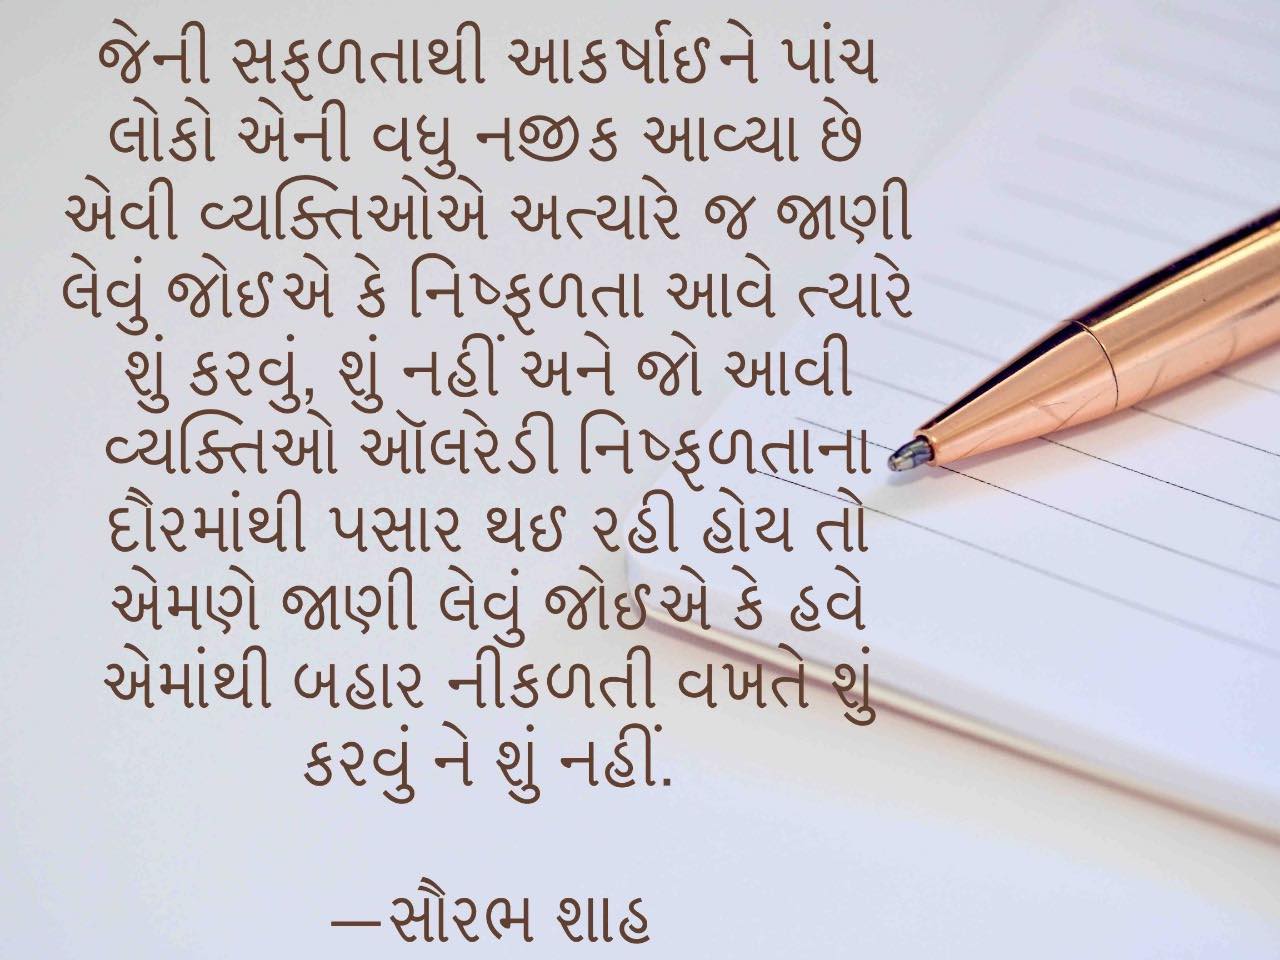 જેની સફળતાથી આકર્ષાઈને પાંચ
લોકો એની વધુ નજીક આવ્યા છે
એવી વ્યક્તિઓએ અત્યારે જ જાણી
લેવું જોઈએ કે નિષ્ફળતા આવે ત્યારે
શું કરવું, શું નહીં અને જો આવી
વ્યક્તિઓ ઑલરેડી નિષ્ફળતાના
દૌરમાંથી પસાર થઈ રહી હોય તો
એમણે જાણી લેવું જોઈએ કે હવે
એમાંથી બહાર નીકળતી વખતે શું
કરવું ને શું નહીં.
—સૌરભ શાહ